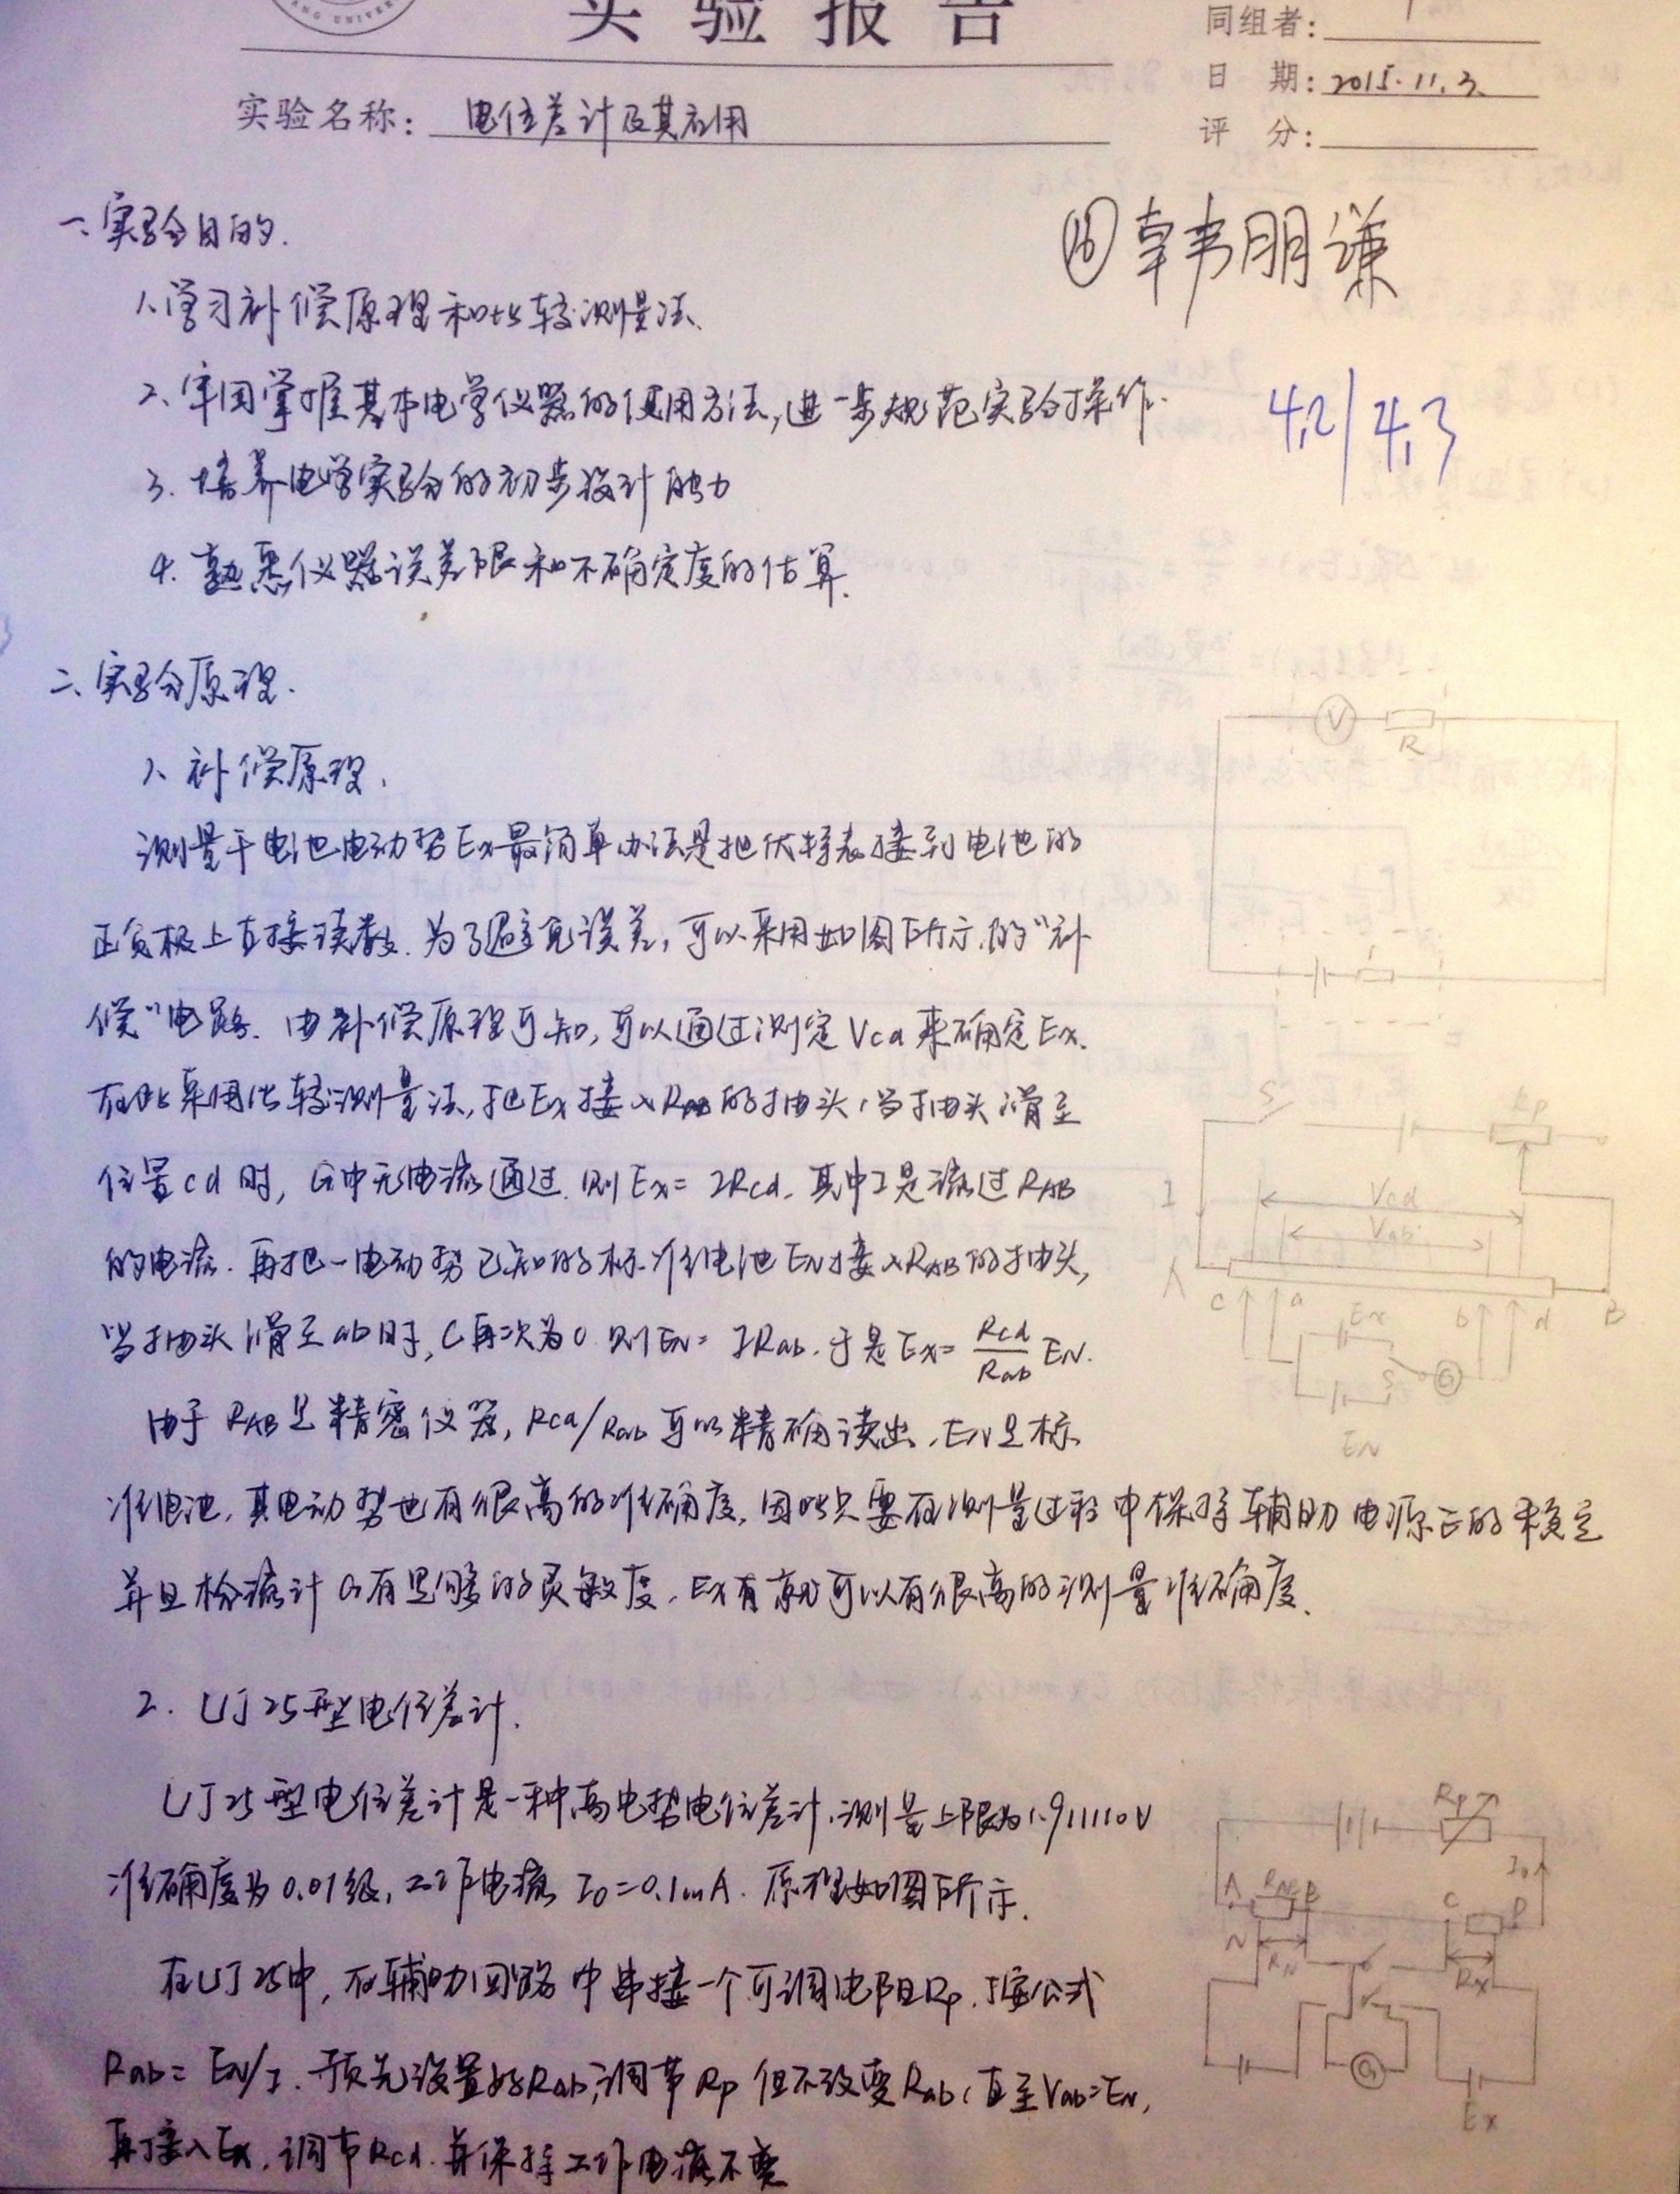 ANG UNIVER
实验报告
同组者:
日 期: 2015.11.3.
评 分:
实验名称: 电位差计及其应用
⑯ 韩朋谦
4.2 | 4.3
一、实验目的.
1.学习补偿原理和比较测量法、
2、牢固掌握基本电学仪器的使用方法,进一步规范实验操作.
3. 培养电学实验的初步设计能力
4. 熟悉仪器误差限和不确定度的估算.
二、实验原理.
1、补偿原理、
测量干电池电动势Ex最简单办法是把伏特表接到电池的
正负极上直接读数. 为了避免误差,可以采用如图所示的"补
偿"电路. 由补偿原理可知,可以通过测定Vcd来确定Ex.
在此采用比较测量法,把Ex接入RAB的抽头,当抽头滑至
位置cd时, G中无电流通过. 则Ex= IRcd. 其中I是流过RAB
的电流. 再把一电动势已知的标准电池EN接入RAB的抽头,
当抽头滑至ab时, G再次为0. 则EN= IRab. 于是Ex= Rcd/Rab EN.
由于RAB是精密仪器, Rcd/Rab可以精确读出, EN是标
准电池, 其电动势也有很高的准确度, 因此只要在测量过程中保持辅助电源E的稳定
并且检流计G有足够的灵敏度, Ex有就可以有很高的测量准确度、
V
R
S
E
Rp
I
Vcd
Vab
A
c
a
b
d
B
Ex
S
G
EN
2. UJ25型电位差计.
UJ25型电位差计是一种高电势电位差计, 测量上限为1.911110V
准确度为0.01级, 工作电流I0=0.1mA. 原理如图所示.
在UJ25中, 在辅助回路中串接一个可调电阻Rp. 按公式
Rab= EN/I. 预先设置好Rab, 调节Rp但不改变Rab, 直至Vab=EN,
再接入Ex, 调节Rcd. 并保持工作电流不变
Rp
I0
A
RAB
B
C
D
N
RN
Rx
G
Ex